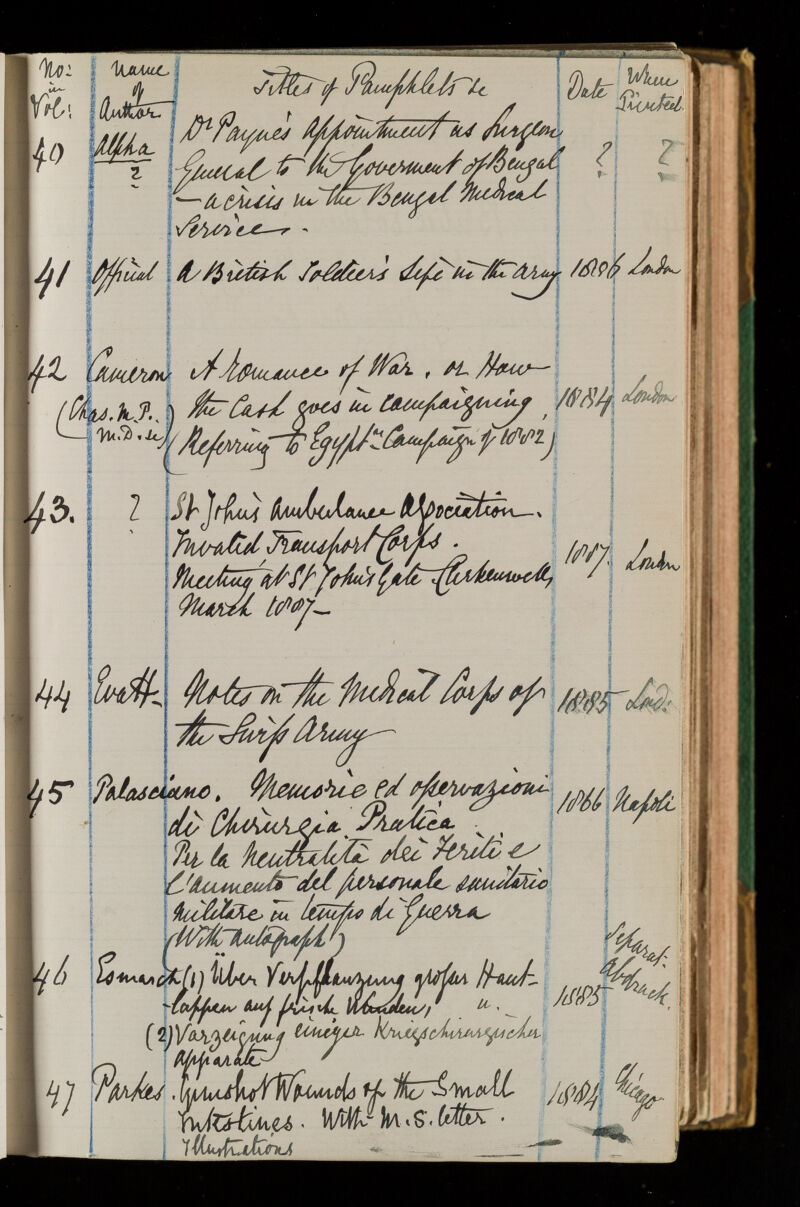 No: in Vol: Name of Author Titles of Pamphlets &c Date Where Printed.
40 Alpha ? Dr Payne's Appointment as Surgeon ? ?
General to the Goverment of Bengal
- a crisis in the Bengal Medical
Service -
41 Official A British Soldier's Life in the Army 1886 London
42 Cameron A Romance of War, or How
(Chas. M.P. the Cash goes in campaigning, 1884 London
M.D. &c) (Referring to Egyptn Campaign of 1882)
43. ? St John's Ambulance Association.
Invalid Transport Corps. 1887. London
Meeting at St John's Gate Clerkenwell,
March 1887 -
44 Evatt - Notes on the Medical Corps of 1885 Lond:
the Swiss Army
45 Palasciano. Memorie ed osservazioni 1866 Napoli
di Chirurgia Pratica
Per la Neutralità dei Feriti e
l'aumento del personale sanitario
militare in tempo di Guerra
(With autograph)
46 Esmarch (1) Über Verpflanzung grosser Haut- Separat-
-lappen auf frische Wunden, u. 1885 Abdruck.
(2) Vorzeigung einiger Kriegschirurgischer
apparate
47 Parkes. Gunshot Wounds of the Small 1884 Chicago
Intestines. With M.S. letter.
Illustrations